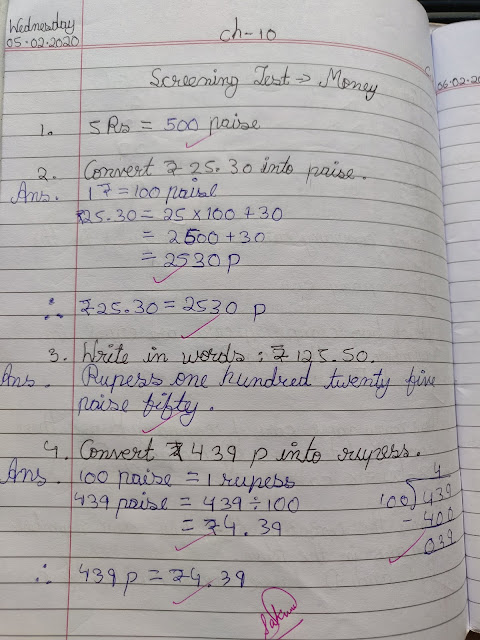 Wednesday
05.02.2020
Ch-10
06.02.20
Screening Test ⇒ Money
1. 5Rs = 500 paise
2. Convert ₹ 25.30 into paise.
Ans. 1 ₹ = 100 paise
₹25.30 = 25 × 100 + 30
= 2500 + 30
= 2530 p
∴ ₹25.30 = 2530 p
3. Write in words : ₹ 125.50.
Ans. Rupess one hundred twenty five
paise fifty.
4. Convert ₹ 439 p into rupess.
Ans. 100 paise = 1 rupess
439 paise = 439 ÷ 100
= ₹4.39
4
100)439
- 400
039
∴ 439 p = ₹4.39